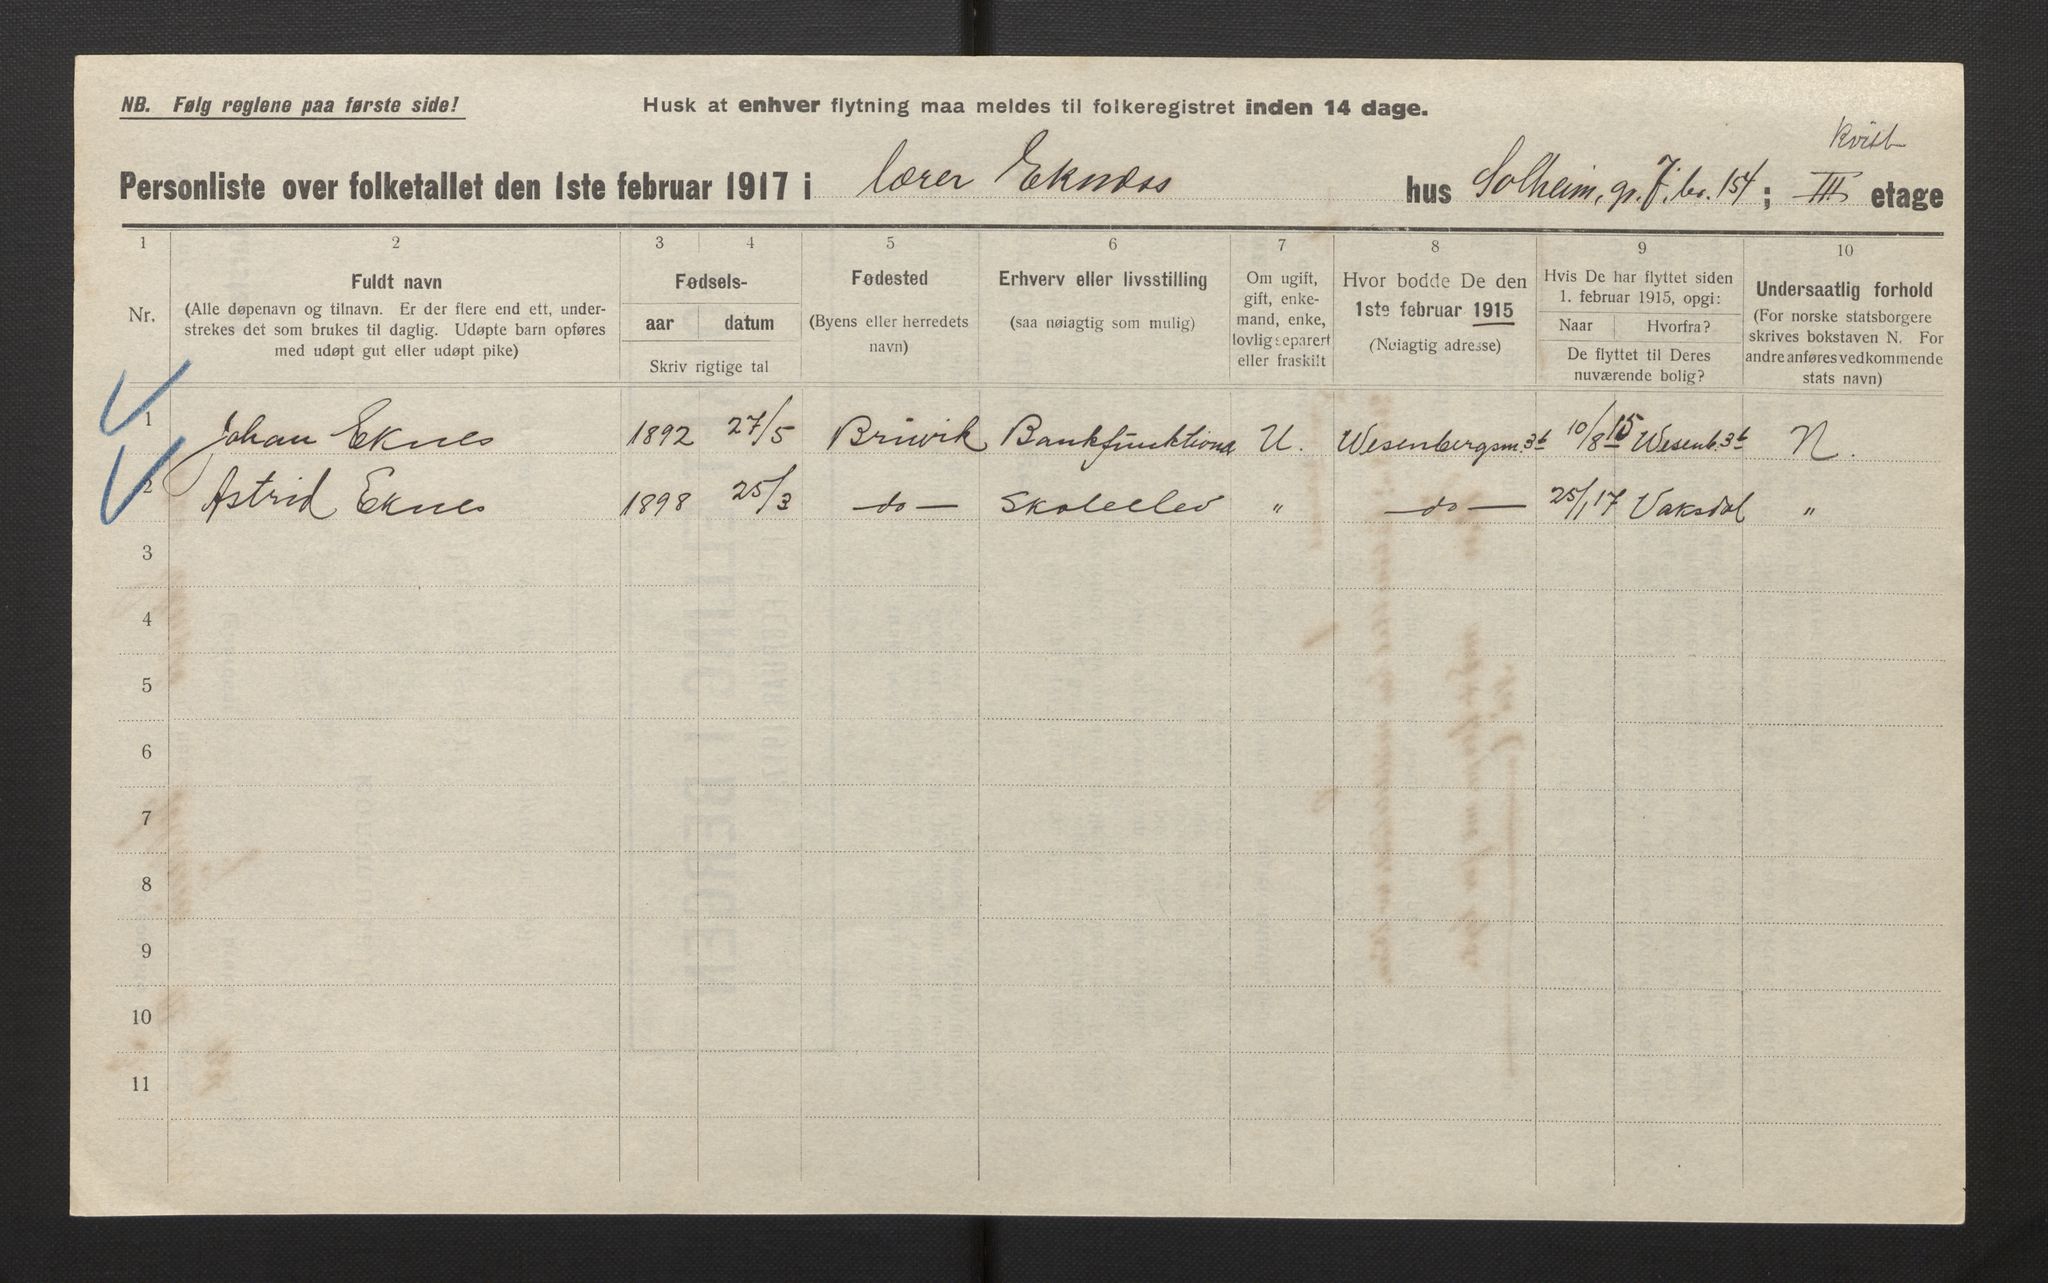 NB. Følg reglene paa første side!
Husk at enhver flytning maa meldes til folkeregistret inden 14 dage.
Kvist
Personliste over folketallet den 1ste februar 1917 i lærer Eknæss hus Solheim, gr. 7, br. 154; III etage
1 2 3 4 5 6 7 8 9 10
Nr.
Fuldt navn
(Alle døpenavn og tilnavn. Er der flere end ett, under-
strekes det som brukes til daglig. Udøpte barn opføres
med udøpt gut eller udøpt pike)
Fødsels-
aar datum
Skriv rigtige tal
Fødested
(Byens eller herredets
navn)
Erhverv eller livsstilling
(saa nøiagtig som mulig)
Om ugift,
gift, enke-
mand, enke,
lovlig separert
eller fraskilt
Hvor bodde De den
1ste februar 1915
(Nøiagtig adresse)
Hvis De har flyttet siden
1. februar 1915, opgi:
Naar Hvorfra?
De flyttet til Deres
nuværende bolig?
Undersaatlig forhold
(For norske statsborgere
skrives bokstaven N. For
andre anføres vedkommende
stats navn)
1 Johan Eknes 1892 27/5 Bruvik Bankfunktionæ U. Wesenbergsm. 3b 10/8 15 Wesenb. 3b N.
2 Astrid Eknes 1898 25/3 —do— Skoleelev " —do— 25/1 17 Vaksdal "
3
4
5
6
7
8
9
10
11